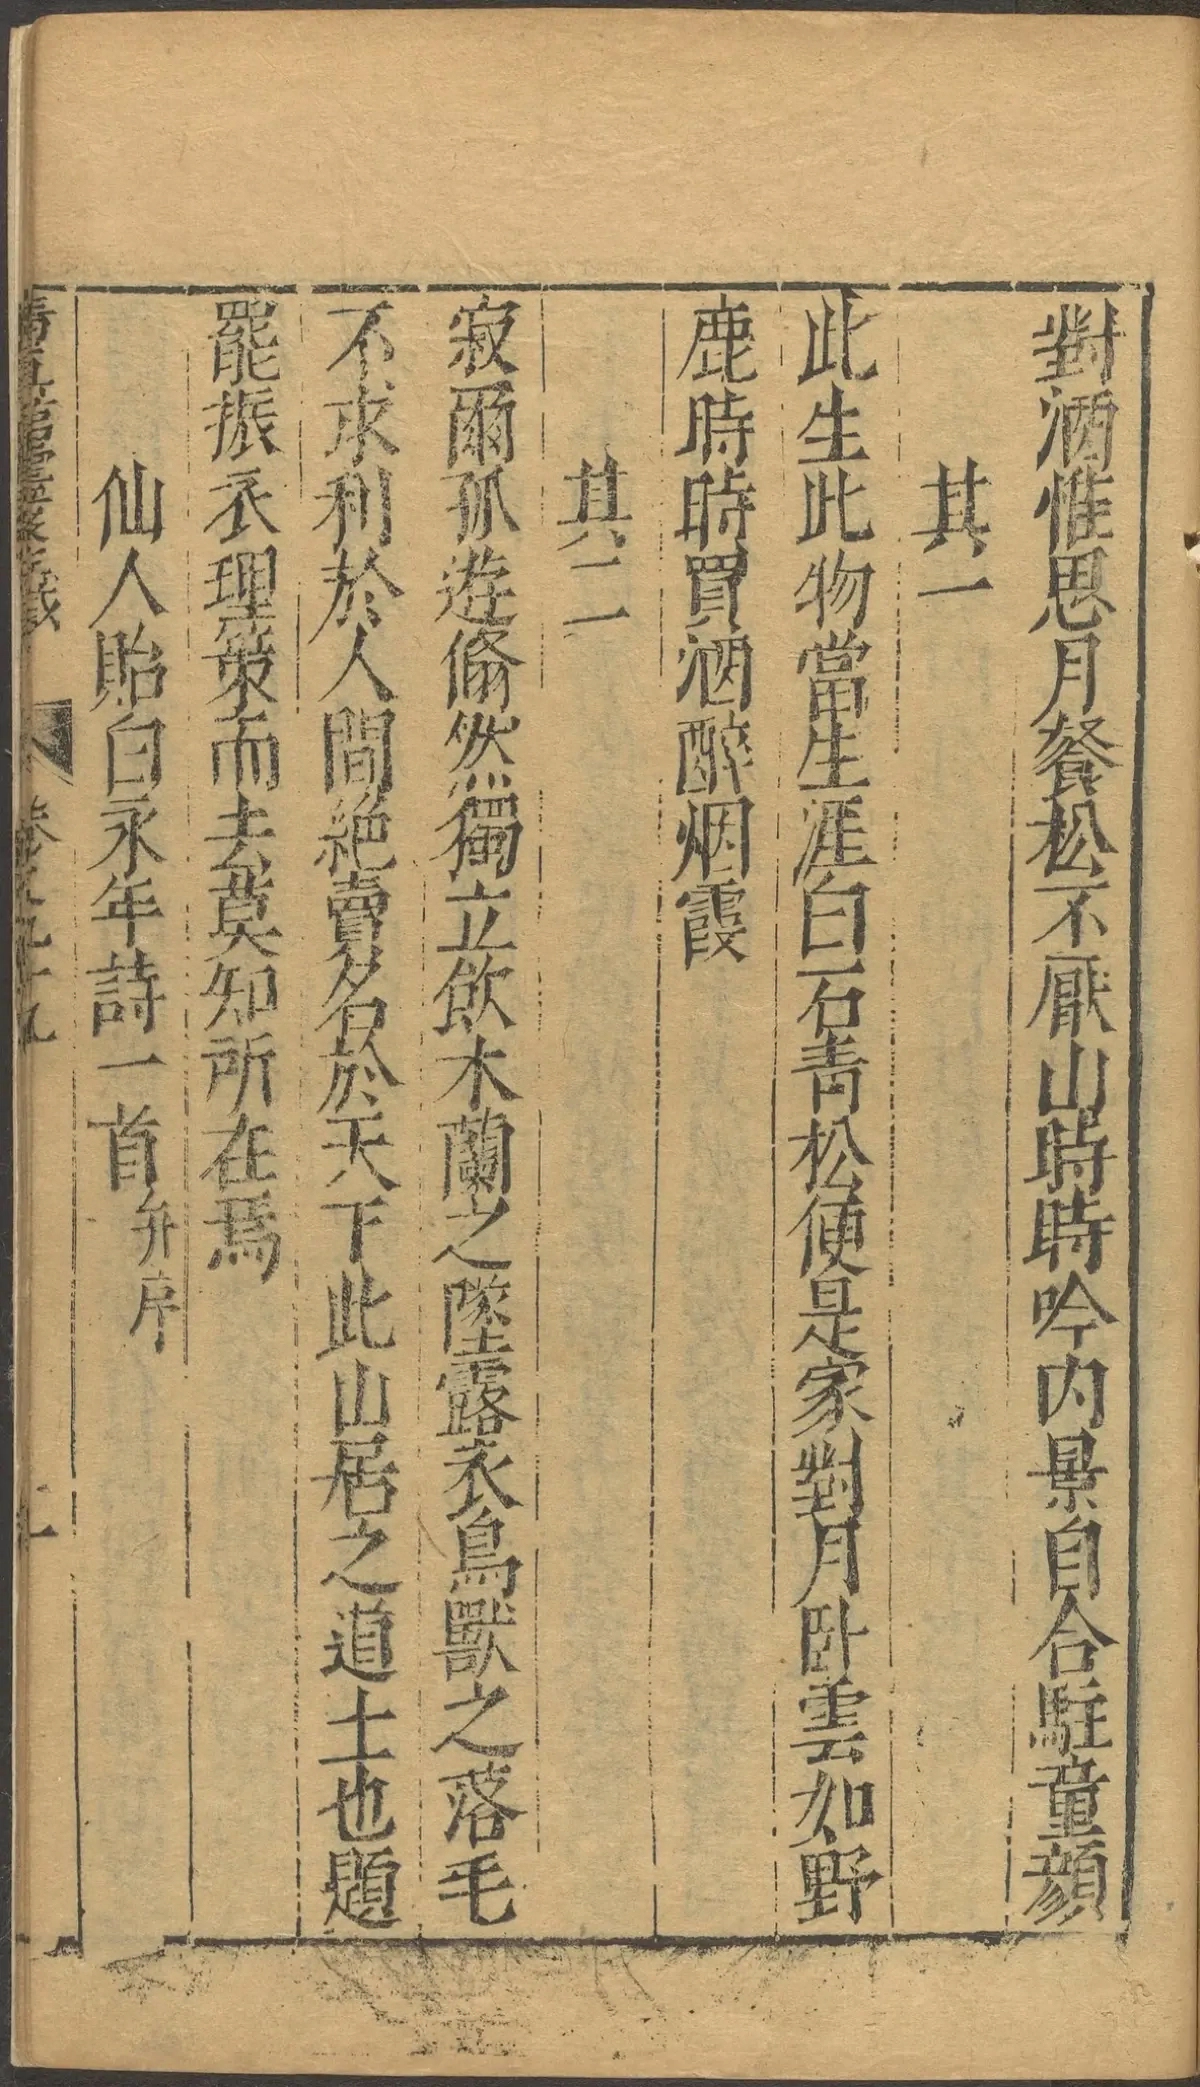 對酒惟思月餐松不厭山時時吟内景自合駐童顔
其一
此生此物當生涯白石青松便是家對月卧雲如野
鹿時時買酒醉烟霞
其二
寂爾孤遊翛然獨立飲木蘭之墜露衣鳥獸之落毛
不求利於人間絶賣名於天下此山居之道士也題
罷振衣理策而去莫知所在焉
仙人貽白永年詩一首并序